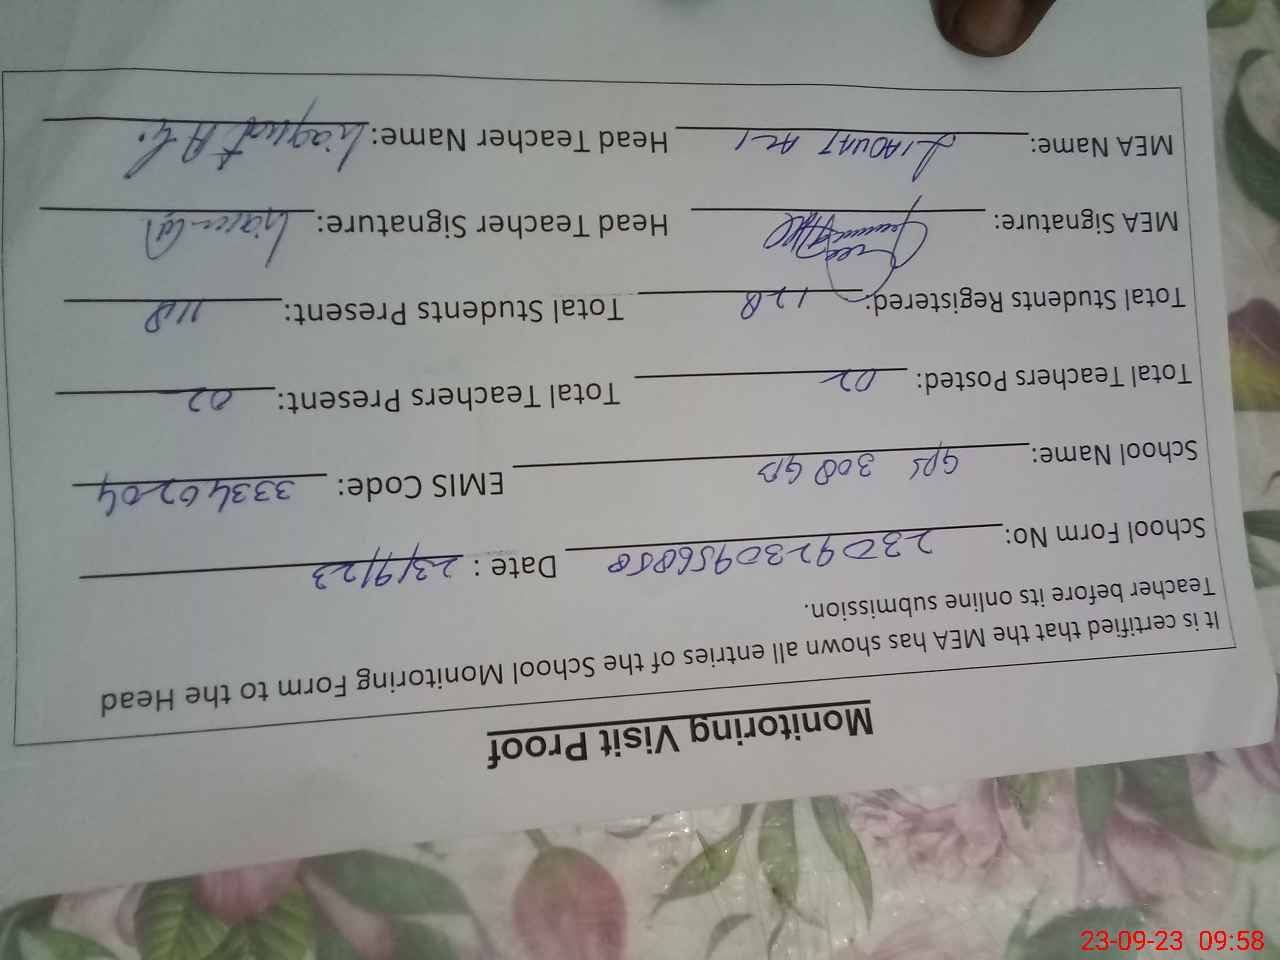 Monitoring Visit Proof
It is certified that the MEA has shown all entries of the School Monitoring Form to the Head
Teacher before its online submission.
School Form No: 2309230956858 Date : 23/9/23
School Name: GPS 308 GB EMIS Code: 33340204
Total Teachers Posted: 02 Total Teachers Present: 02
Total Students Registered: 128 Total Students Present: 118
MEA Signature: Head Teacher Signature:
MEA Name: LIAQUAT ALI Head Teacher Name: Liaquat Ali
23-09-23 09:58